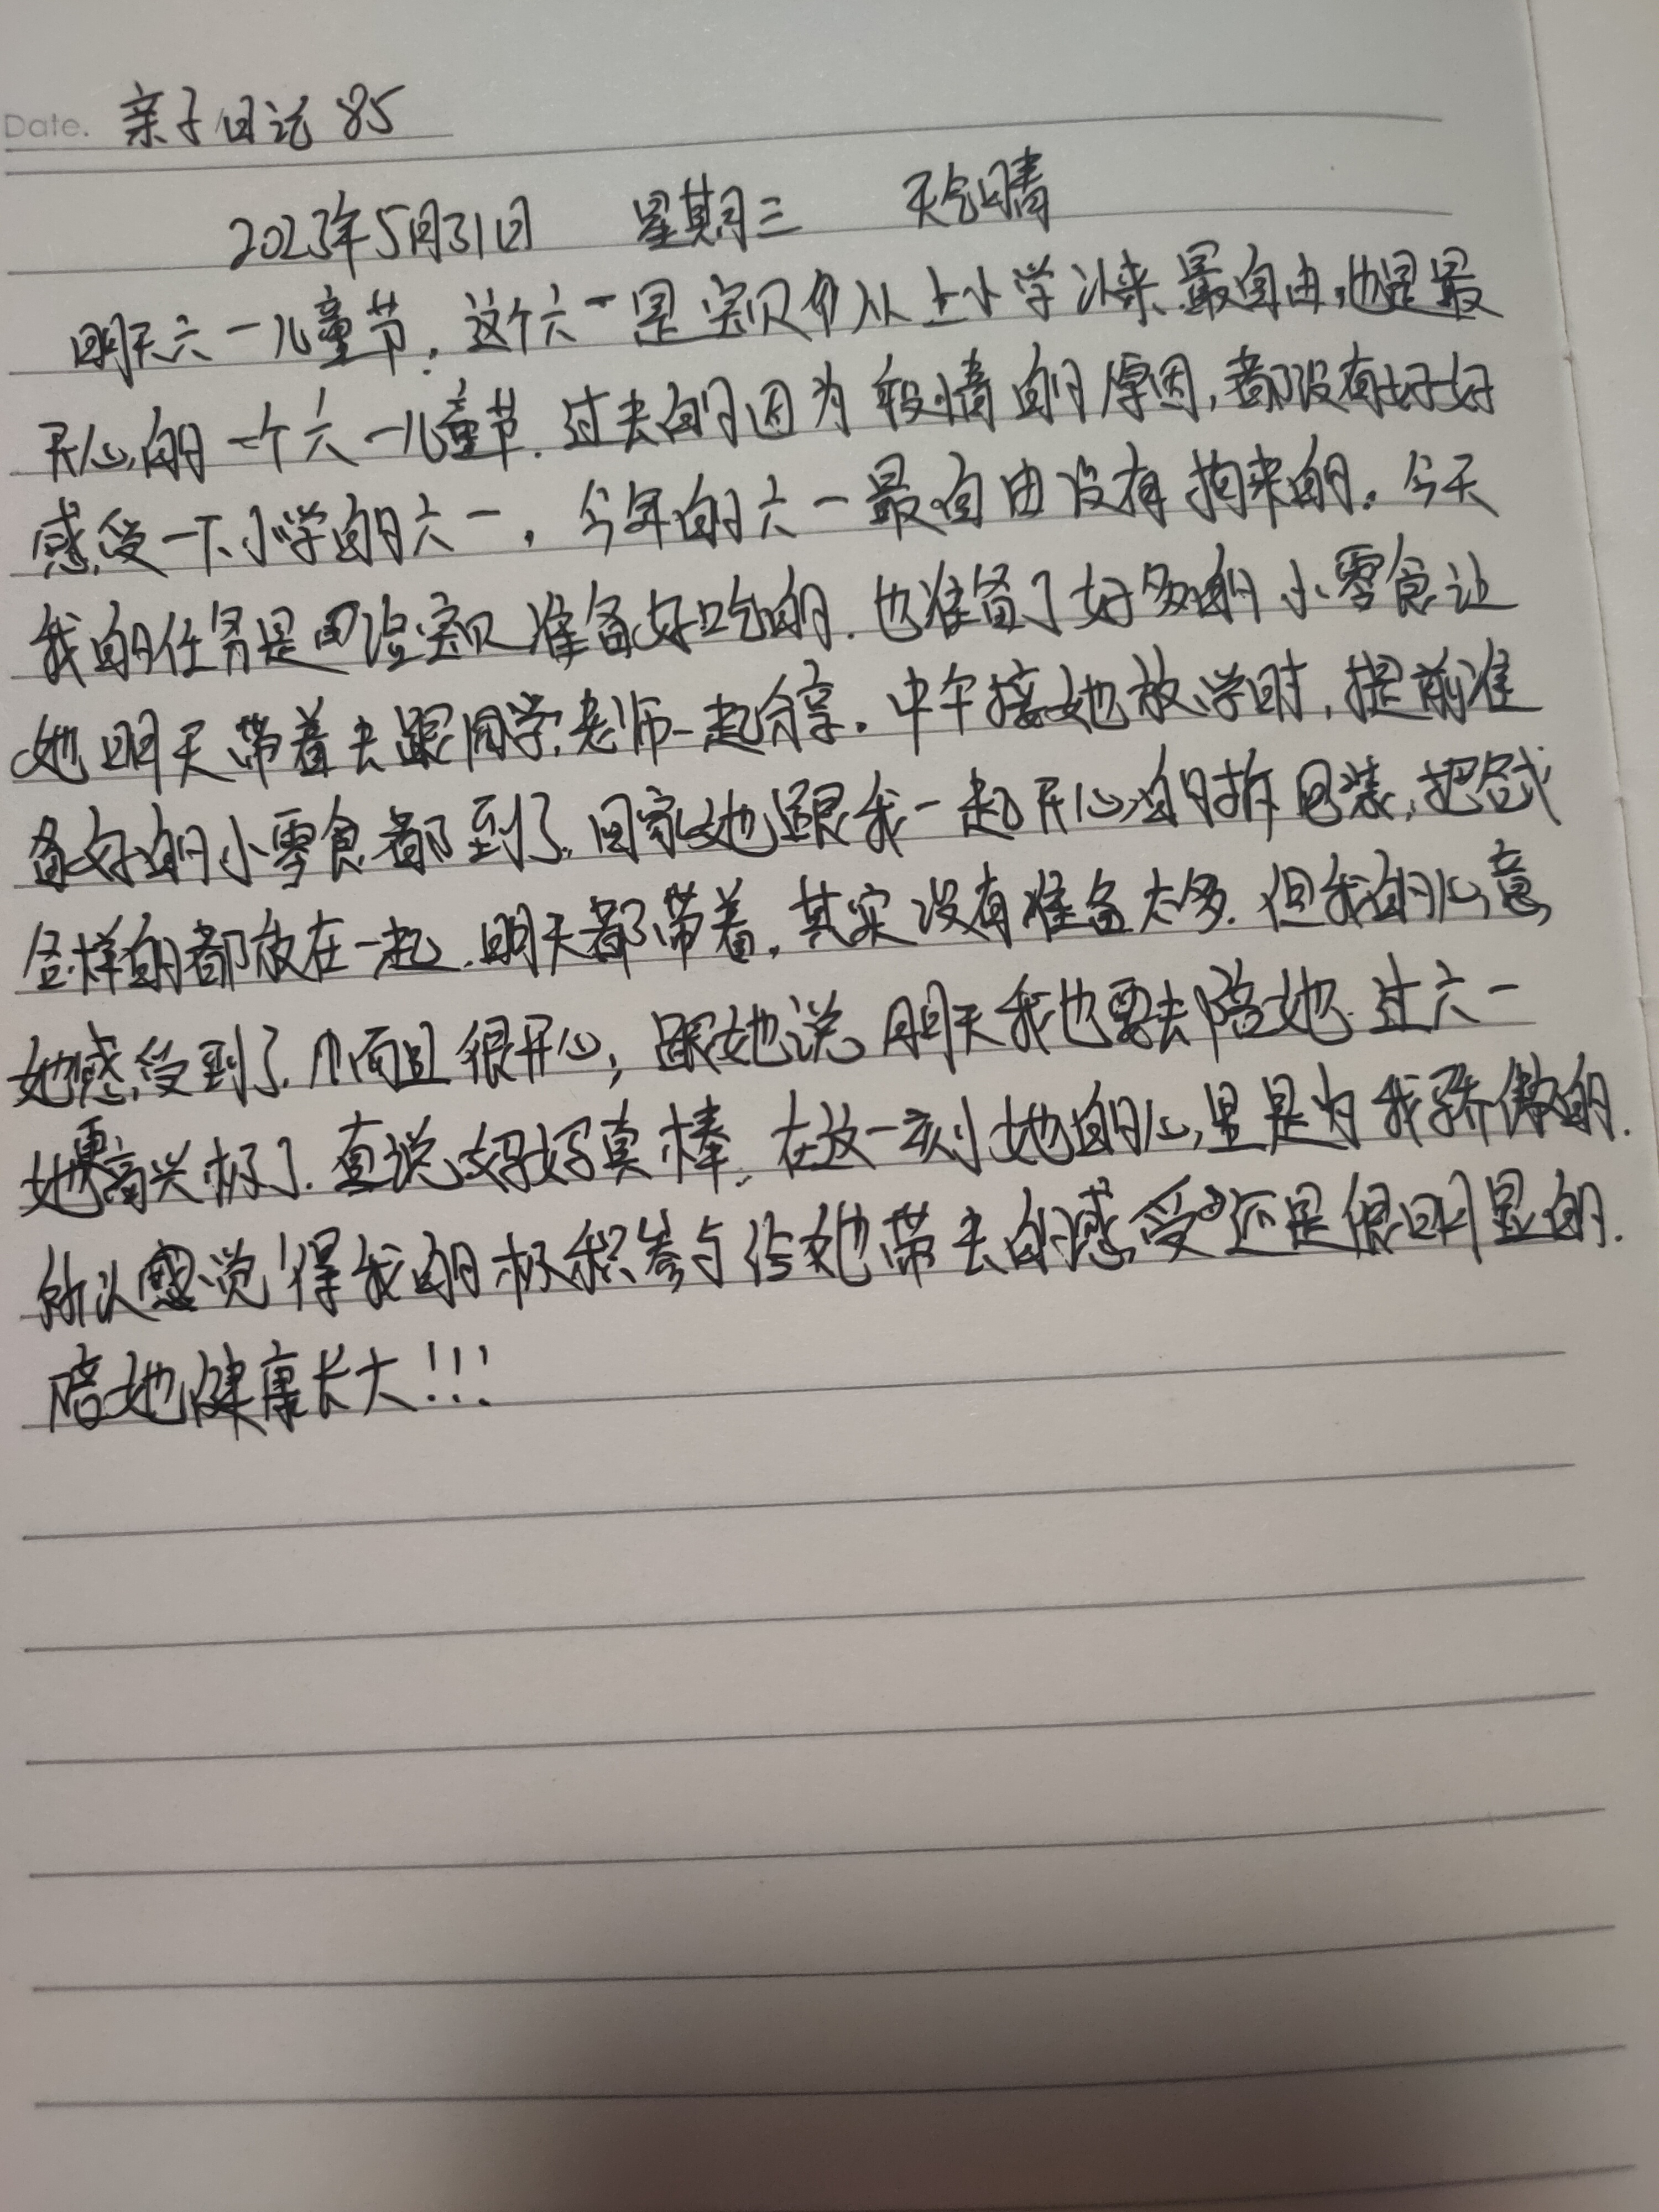 Date. 亲子日记 85
2023年5月31日 星期三 天气晴
明天六一儿童节。这个六一是宝贝从上小学以来最自由,也是最
开心的一个六一儿童节.过去的因为疫情的原因,都没有好好
感受一下小学的六一,今年的六一最自由没有拘束的。今天
我的任务是给宝贝准备好吃的.也准备了好多的小零食让
她明天带着去跟同学.老师一起分享。中午接她放学时,提前准
备好的小零食都到了.回家她跟我一起开心的拆包装,把各式
各样的都放在一起.明天都带着,其实没有准备太多.但我的心意
她感受到了.而且很开心,跟她说明天我也要去陪她过六一
她更高兴极了.直说妈妈真棒.在这一刻她的心里是为我骄傲的.
所以感觉得我的极积参与给她带去的感受还是很明显的.
陪她健康长大!!!